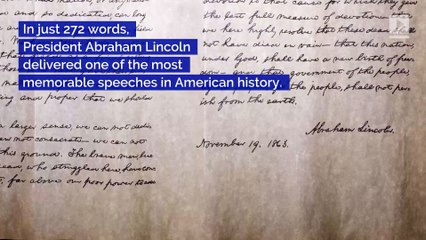 In just 272 words,
President Abraham Lincoln
delivered one of the most
memorable speeches in American history.
the last full measure of devotion
we here highly resolve that these dead
not have died in vain — that this nation,
under God, shall have a new birth of free
and that government of the people,
the people, shall not per
ish from the earth.
Abraham Lincoln.
November 19, 1863.
and proper that we should
larger sense, we can not dedi
we can not
this ground. The brave men, liv
who struggled here, have con
far above our poor power to add